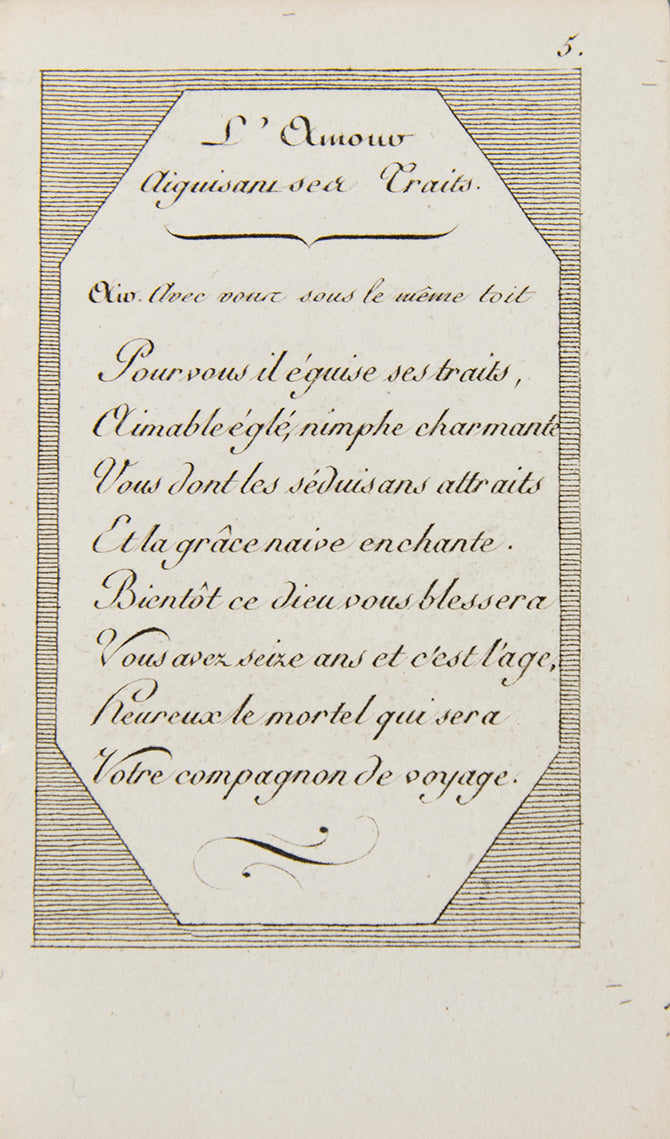 5.
L'Amour
Aiguisant ses Traits.
Air. Avec vous sous le même toit
Pour vous il éguise ses traits,
Aimable églé, nimphe charmante
Vous dont les séduisans attraits
Et la grâce naive enchante.
Bientôt ce dieu vous blessera
Vous avez seize ans et c'est l'age,
Heureux le mortel qui sera
Votre compagnon de voyage.